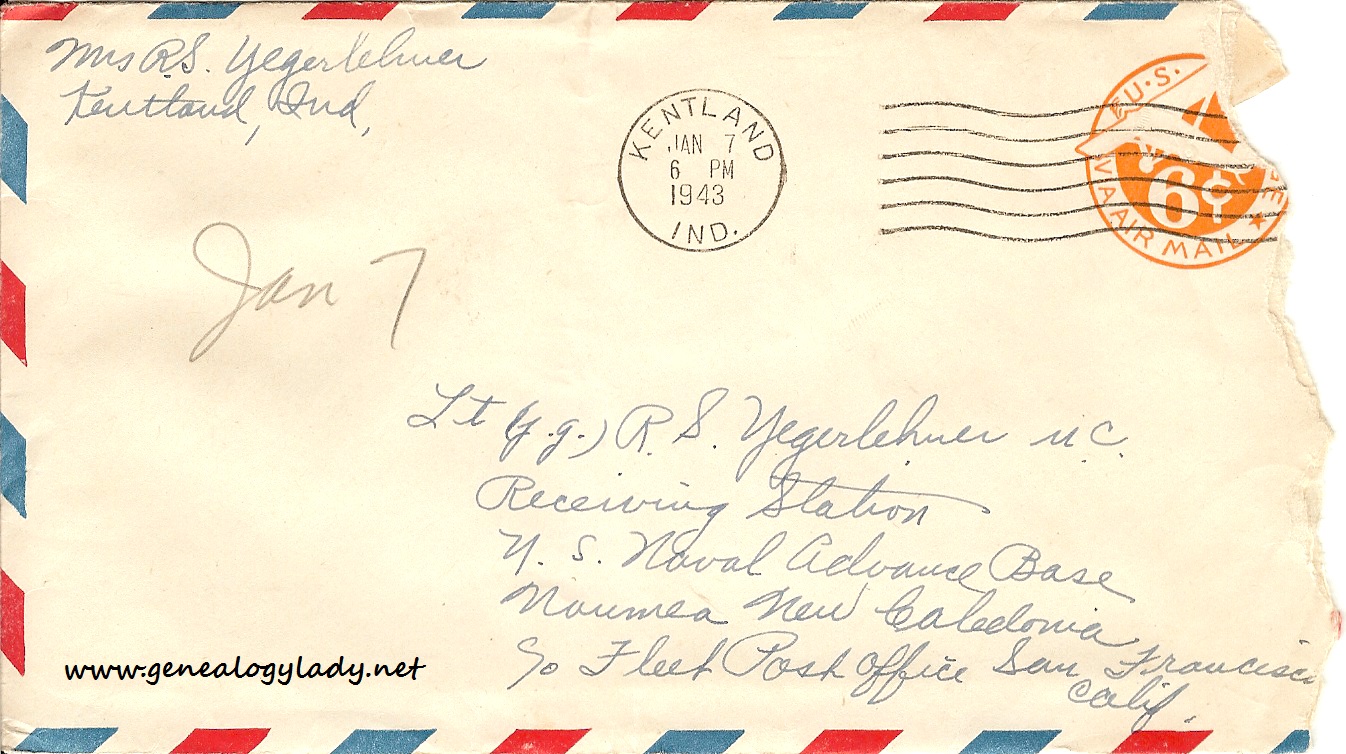 Mrs R.S. Yegerlehner
Kentland, Ind,
KENTLAND
JAN 7
6 PM
1943
IND.
U.S.
6¢
VIA AIR MAIL
Jan 7
Lt (j.g.) R. S. Yegerlehner M C.
Receiving Station
U. S. Naval Advance Base
Noumea New Caledonia
c/o Fleet Post Office San Francisco
Calif.
www.genealogylady.net